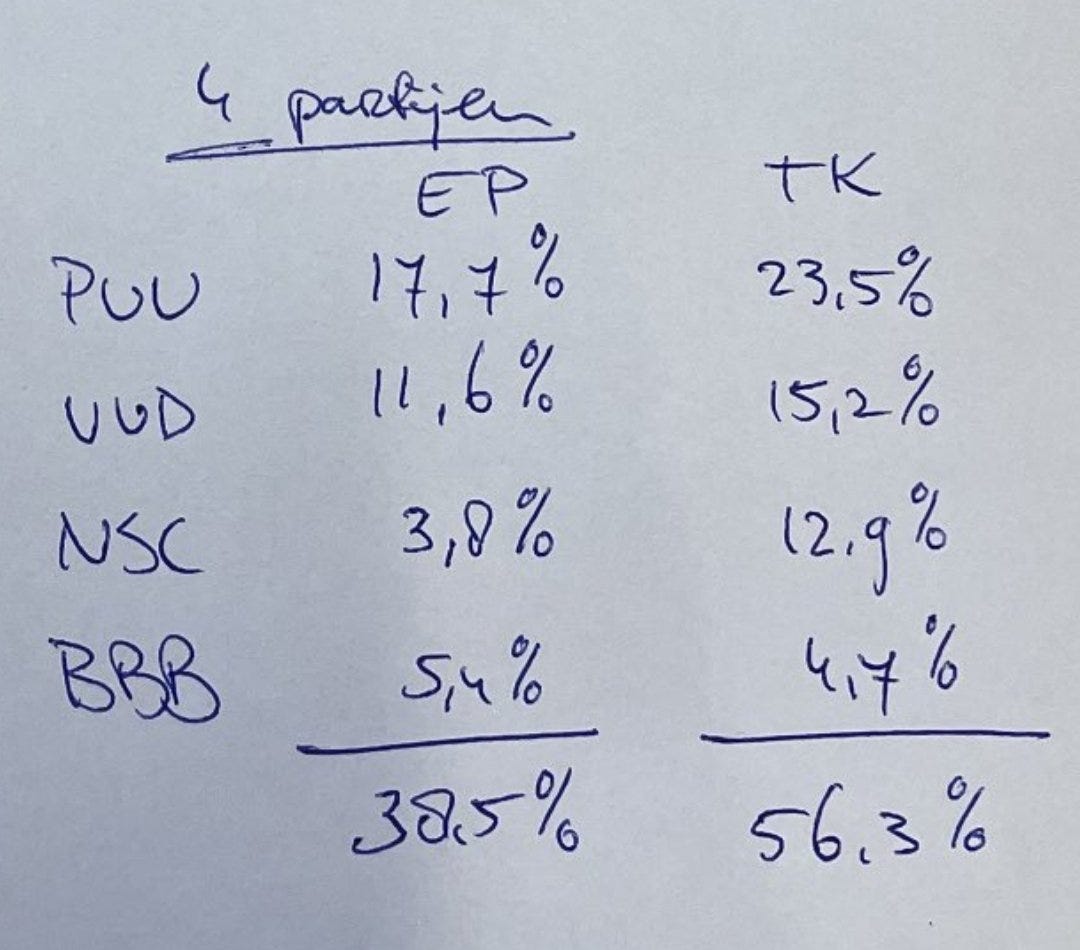 4 partijen
EP TK
PVV 17,7% 23,5%
VVD 11,6% 15,2%
NSC 3,8% 12,9%
BBB 5,4% 4,7%
38,5% 56,3%